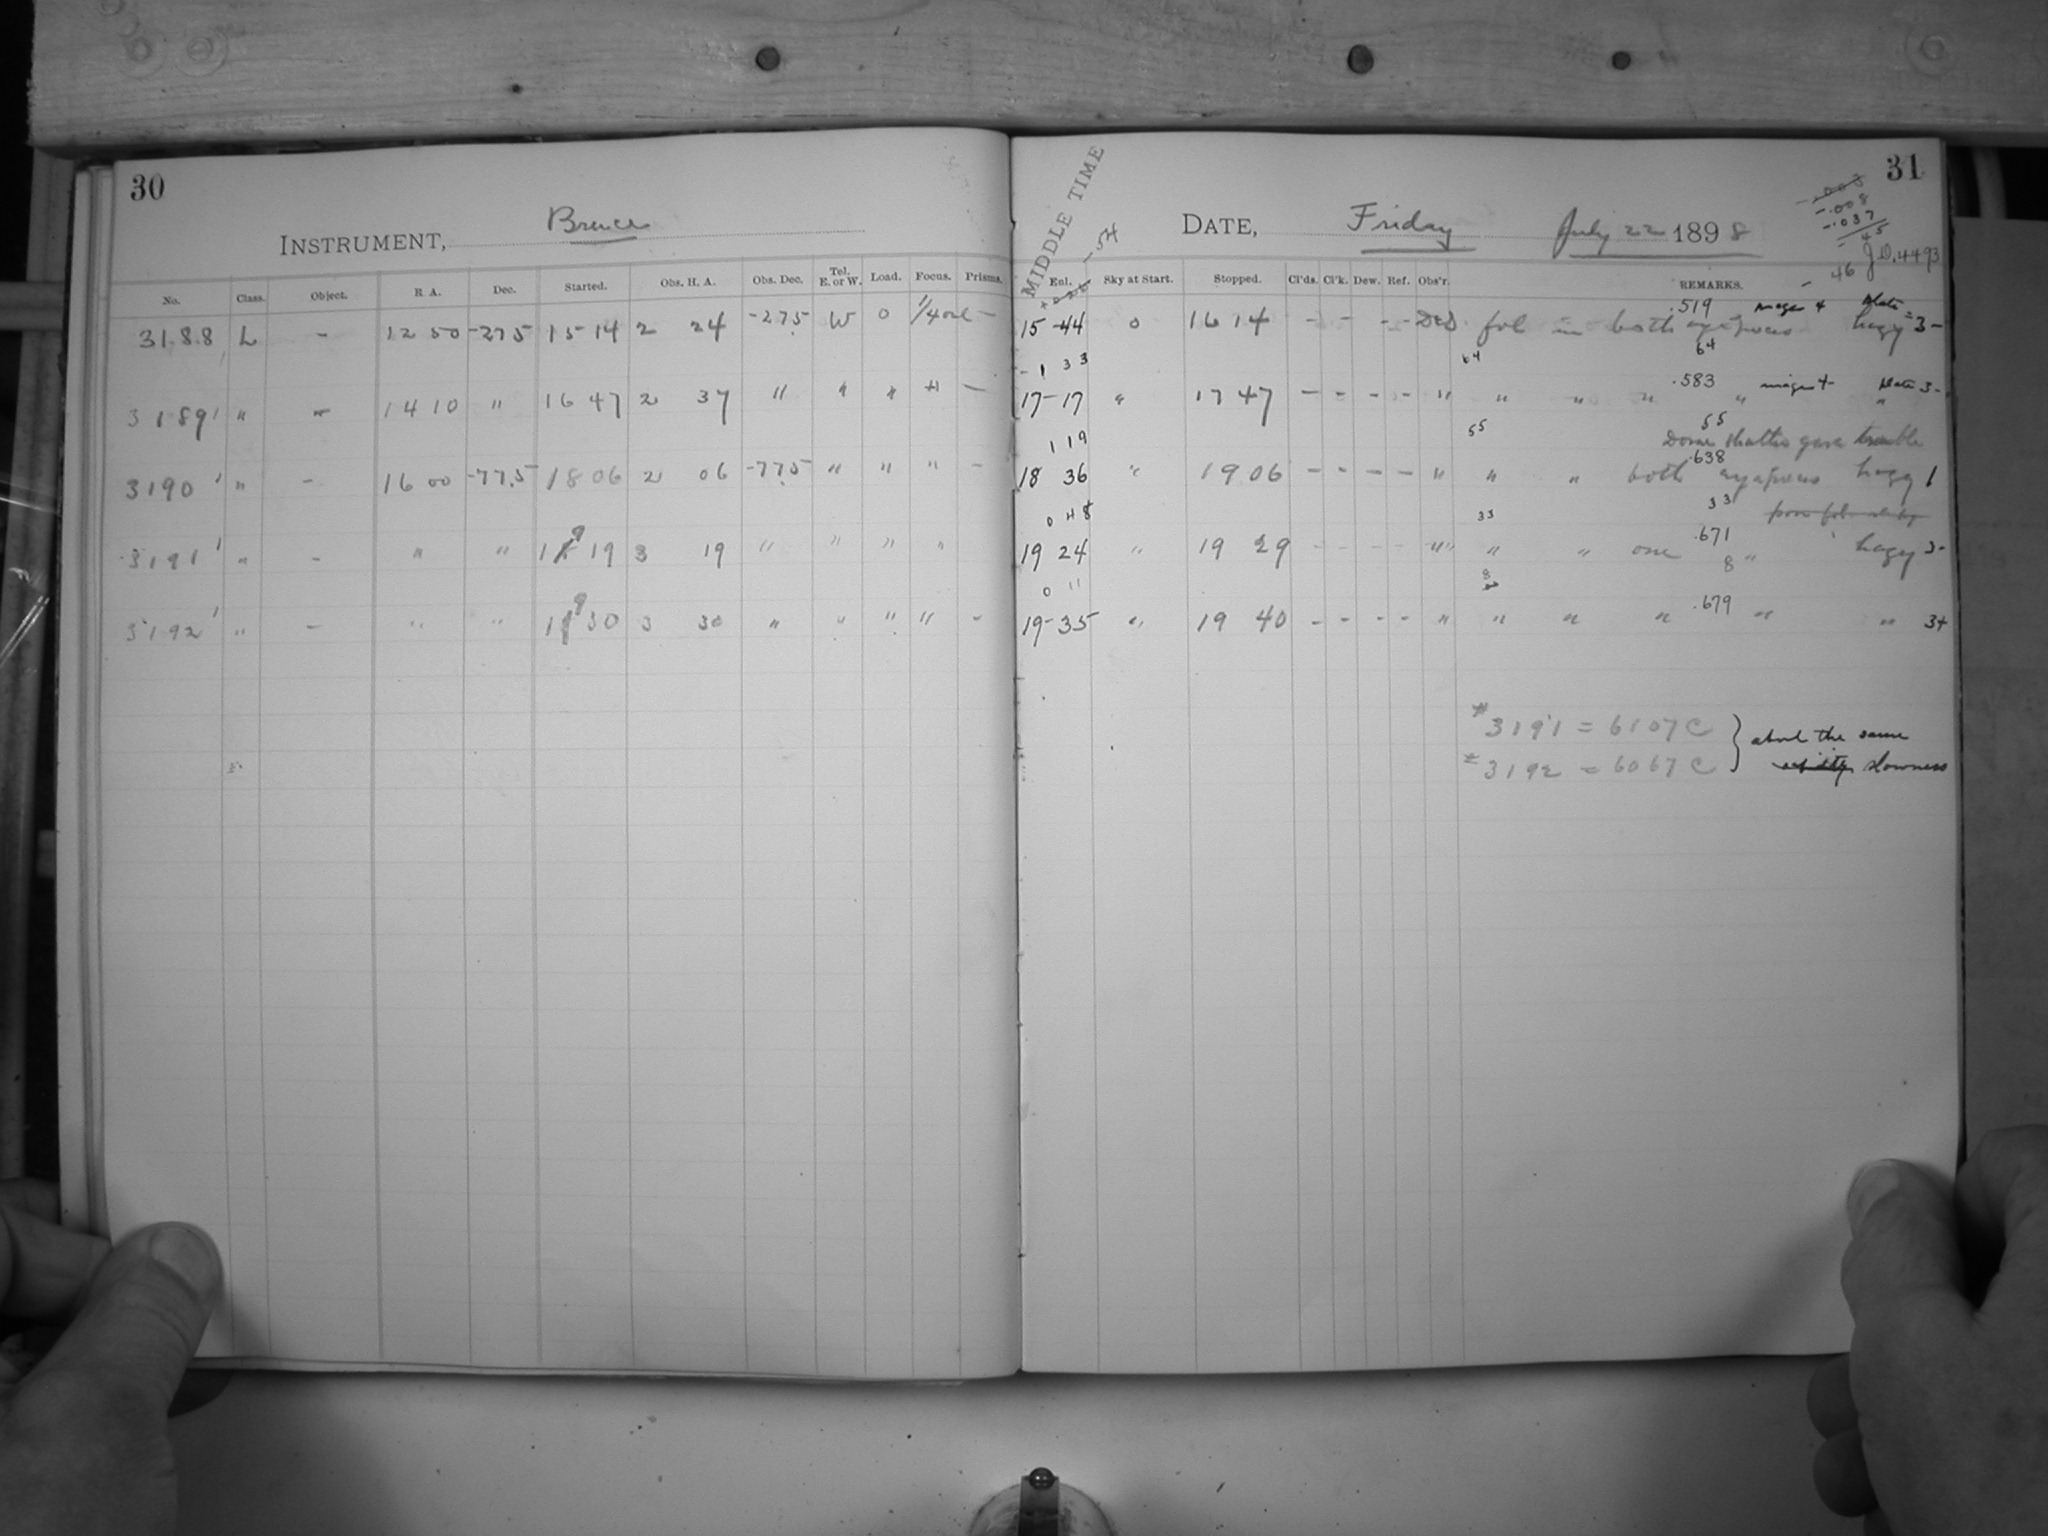 30
INSTRUMENT, Bruce
No. Class. Object. R A. Dec. Started. Obs. H. A. Obs. Dec. Tel. E. or W. Load. Focus. Prisms.
3188 L - 12 50 -27.5 15-14 2 24 -27.5 W 0 -
3189 " - 14 10 " 16 47 2 37 " " " " -
3190 " - 16 00 -77.5 18 06 2 06 -77.5 " " " -
3191 " - " " 19 19 3 19 " " " "
3192 " - " " 19 30 3 30 " " " " -
31
MIDDLE TIME
- 54
DATE, Friday July 22 1898
-.008
-.037
45
- 46 J.D. 4493
Enl. Sky at Start. Stopped. Cl'ds. Cl'k. Dew. Ref. Obs'r. REMARKS.
.519 images 4 plate = 3-
15-44 0 16 14 - - - - fol in both hazy
64 64
- 1 33
.583 images 4 plate 3-
17-17 " 17 47 - - - - " " " " " "
55 55
1 19
Dome shutter gave trouble
.638
18 36 " 19 06 - - - - " " " both hazy 1
33 33
0 48
.671
19 24 " 19 29 - - - - " " " one " hazy 3-
8 8
0 11
.679
19-35 " 19 40 - - - - " " " " " " 3+
# 3191 = 6107 C } about the same
# 3192 = 6067 C } slowness